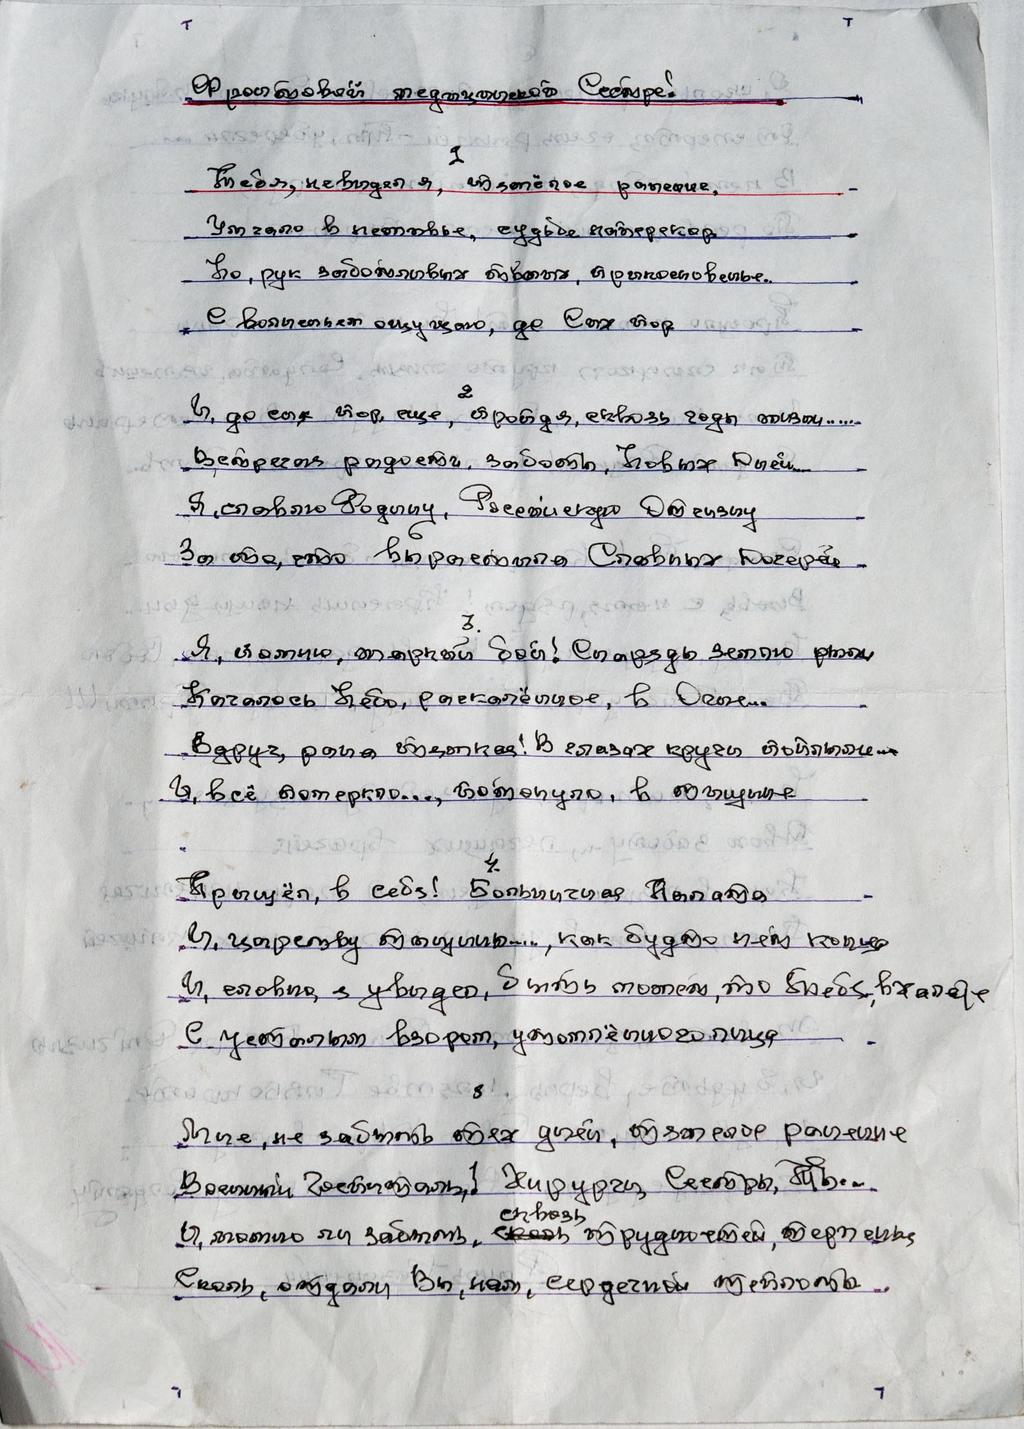 Фронтовой медицинской Сестре!
1
Тебя, не видел я, тяжёлое ранение,
Умчало в неътье, судьбе наперекор
Но, рук заботливых твоих, прикосновенье..
С волненьем ощущаю, до Сих пор
2
И, до сих пор, еще, пройдя, сквозь годы жизни.....
Встречая радости, заботы, Новых Дней...
Я, славлю Родину, Российскую Отчизну
За то, что вырастила Славных Дочерей
3.
Я, помню, жаркий бой! Снаряды землю рыли
Качалось Небо, раскалённое, в Огне...
Вдруг, рана тяжкая! В глазах круги поплыли...
И, всё померкло..., потонуло, в тишине
4.
Пришёл, в себя! Больничная Палата
И, царству тишины...., как будто нет конца
И, словно, я увидел, быть может, то Тебя, в халате
С усталым взором, утомлённого лица
5
Мне, не забыть тех дней, тяжелое ранение
Военный Госпиталь,! Хирурги, Сестры, Ты...
И, можно ли забыть, сквозь трудностей, терпенья
Сколь, отдали Вы, нам, сердечной теплоты..